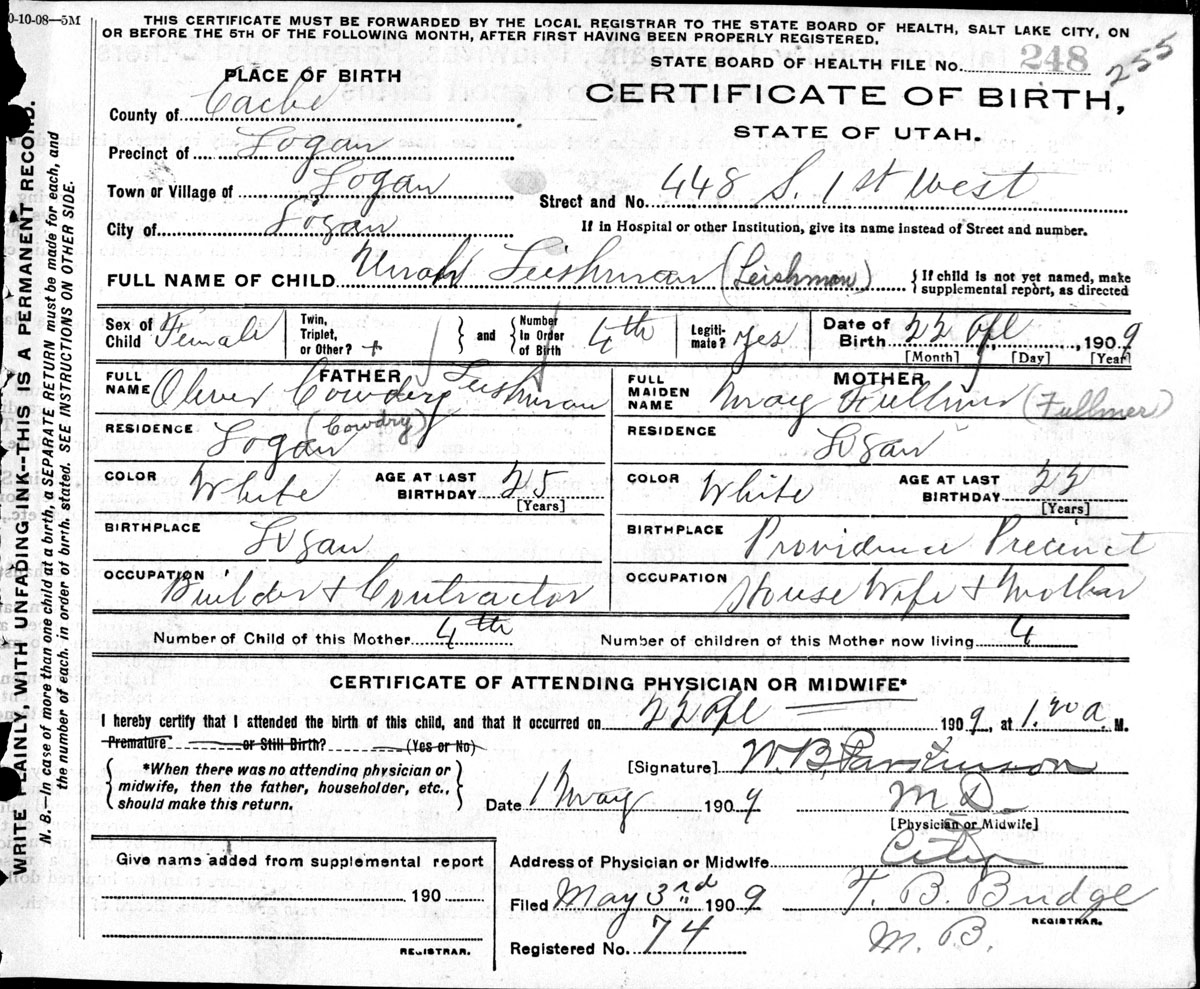 0-10-08—5M
THIS CERTIFICATE MUST BE FORWARDED BY THE LOCAL REGISTRAR TO THE STATE BOARD OF HEALTH, SALT LAKE CITY, ON
OR BEFORE THE 5TH OF THE FOLLOWING MONTH, AFTER FIRST HAVING BEEN PROPERLY REGISTERED.
STATE BOARD OF HEALTH FILE No. 248 255
CERTIFICATE OF BIRTH,
STATE OF UTAH.
PLACE OF BIRTH
County of Cache
Precinct of Logan
Town or Village of Logan
City of Logan
Street and No. 448 S. 1st West
If in Hospital or other Institution, give its name instead of Street and number.
FULL NAME OF CHILD Leishman (Leishman) { If child is not yet named, make
supplemental report, as directed
Sex of Child Female
Twin, Triplet, or Other? +
} and { Number In Order of Birth 4th
Legitimate? yes
Date of Birth 22 Apl , 1909
[Month] [Day] [Year]
FATHER
FULL NAME Oliver Cowdery Leishman
(Cowdry)
RESIDENCE Logan
COLOR White AGE AT LAST BIRTHDAY 25
[Years]
BIRTHPLACE Logan
OCCUPATION Builder + Contractor
MOTHER
FULL MAIDEN NAME May Fullmer (Fullmer)
RESIDENCE Logan
COLOR White AGE AT LAST BIRTHDAY 25
[Years]
BIRTHPLACE Providence Precinct
OCCUPATION House Wife + Mother
Number of Child of this Mother 4th Number of children of this Mother now living 4
CERTIFICATE OF ATTENDING PHYSICIAN OR MIDWIFE*
I hereby certify that I attended the birth of this child, and that it occurred on 22 Apl 1909, at 1.20 a. M.
Premature or Still Birth? (Yes or No)
{ *When there was no attending physician or
midwife, then the father, householder, etc.,
should make this return. }
[Signature] W. B. Parkinson
Date 1 May 1909 M D
[Physician or Midwife]
Give name added from supplemental report
190
REGISTRAR.
Address of Physician or Midwife City
Filed May 3rd 1909 T. B. Budge
REGISTRAR.
Registered No. 74 M. B.
WRITE PLAINLY, WITH UNFADING INK--THIS IS A PERMANENT RECORD.
N. B.—In case of more than one child at a birth, a SEPARATE RETURN must be made for each, and
the number of each. in order of birth. stated. SEE INSTRUCTIONS ON OTHER SIDE.